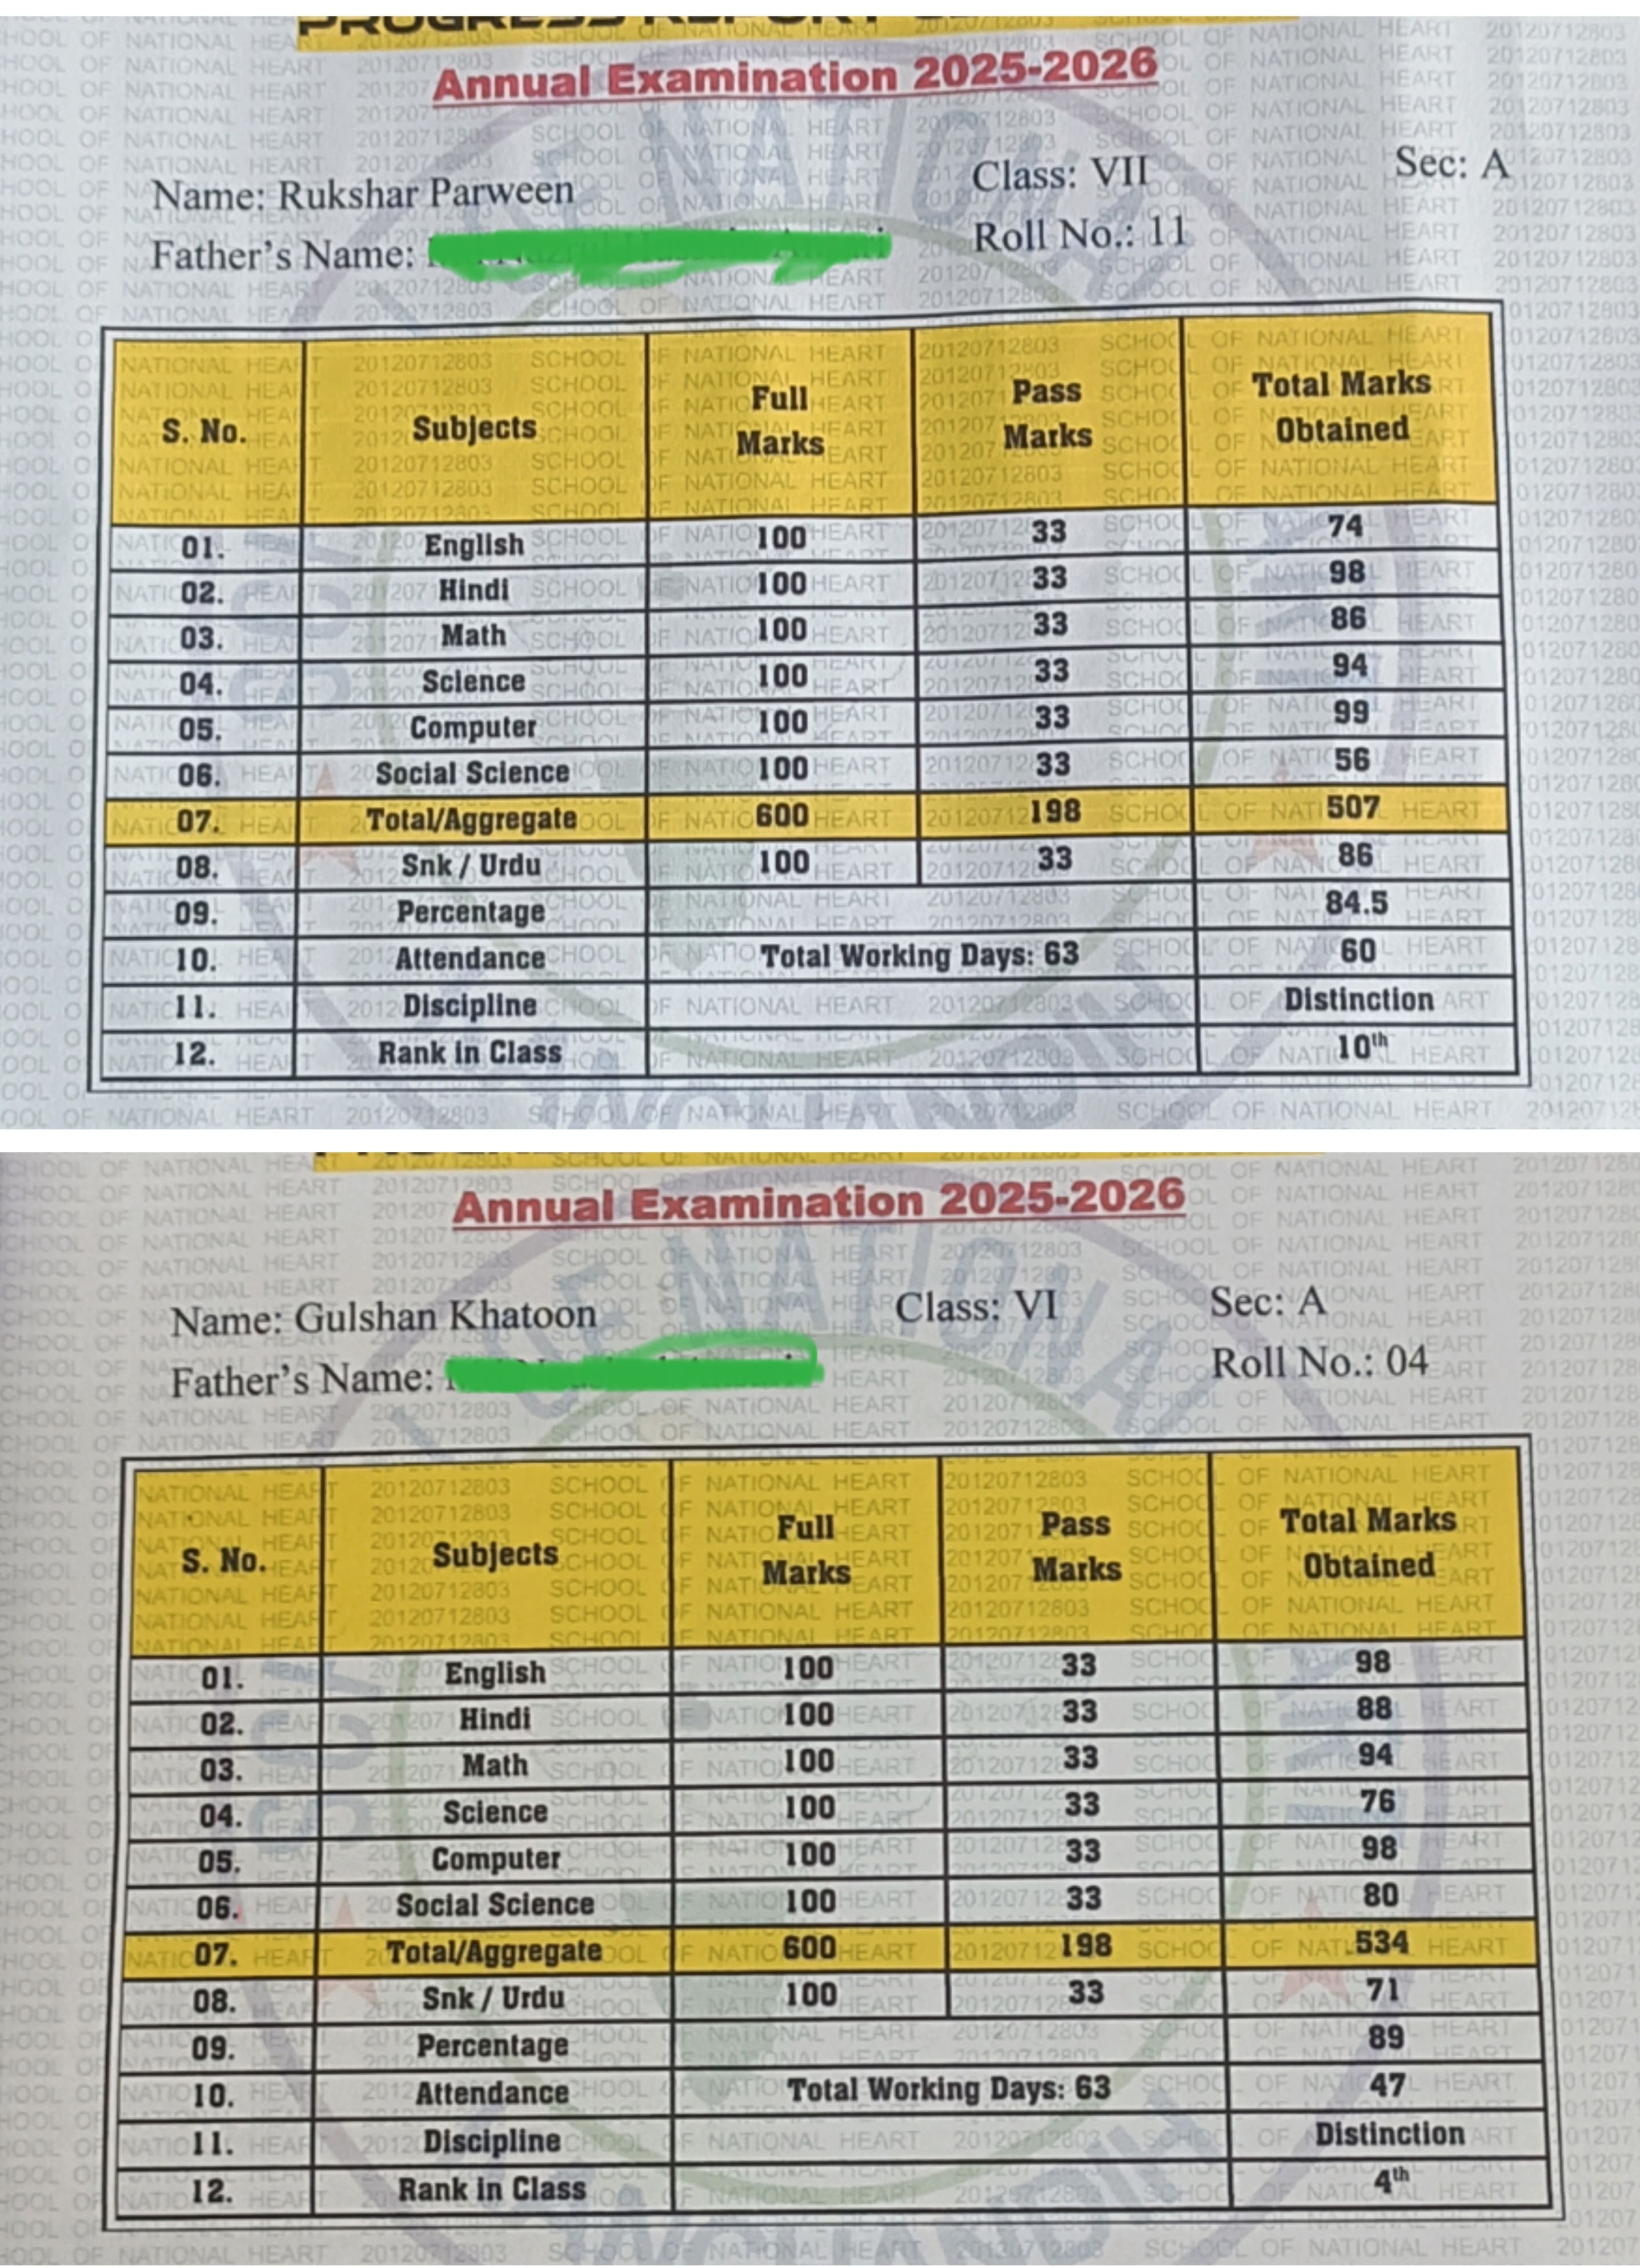 PROGRESS REPORT
Annual Examination 2025-2026
Name: Rukshar Parween Class: VII Sec: A
Father's Name: Roll No.: 11
S. No. Subjects Full Marks Pass Marks Total Marks Obtained
01. English 100 33 74
02. Hindi 100 33 98
03. Math 100 33 86
04. Science 100 33 94
05. Computer 100 33 99
06. Social Science 100 33 56
07. Total/Aggregate 600 198 507
08. Snk / Urdu 100 33 86
09. Percentage 84.5
10. Attendance Total Working Days: 63 60
11. Discipline Distinction
12. Rank in Class 10th
Annual Examination 2025-2026
Name: Gulshan Khatoon Class: VI Sec: A
Father's Name: Roll No.: 04
S. No. Subjects Full Marks Pass Marks Total Marks Obtained
01. English 100 33 98
02. Hindi 100 33 88
03. Math 100 33 94
04. Science 100 33 76
05. Computer 100 33 98
06. Social Science 100 33 80
07. Total/Aggregate 600 198 534
08. Snk / Urdu 100 33 71
09. Percentage 89
10. Attendance Total Working Days: 63 47
11. Discipline Distinction
12. Rank in Class 4th
SCHOOL OF NATIONAL HEART 20120712803